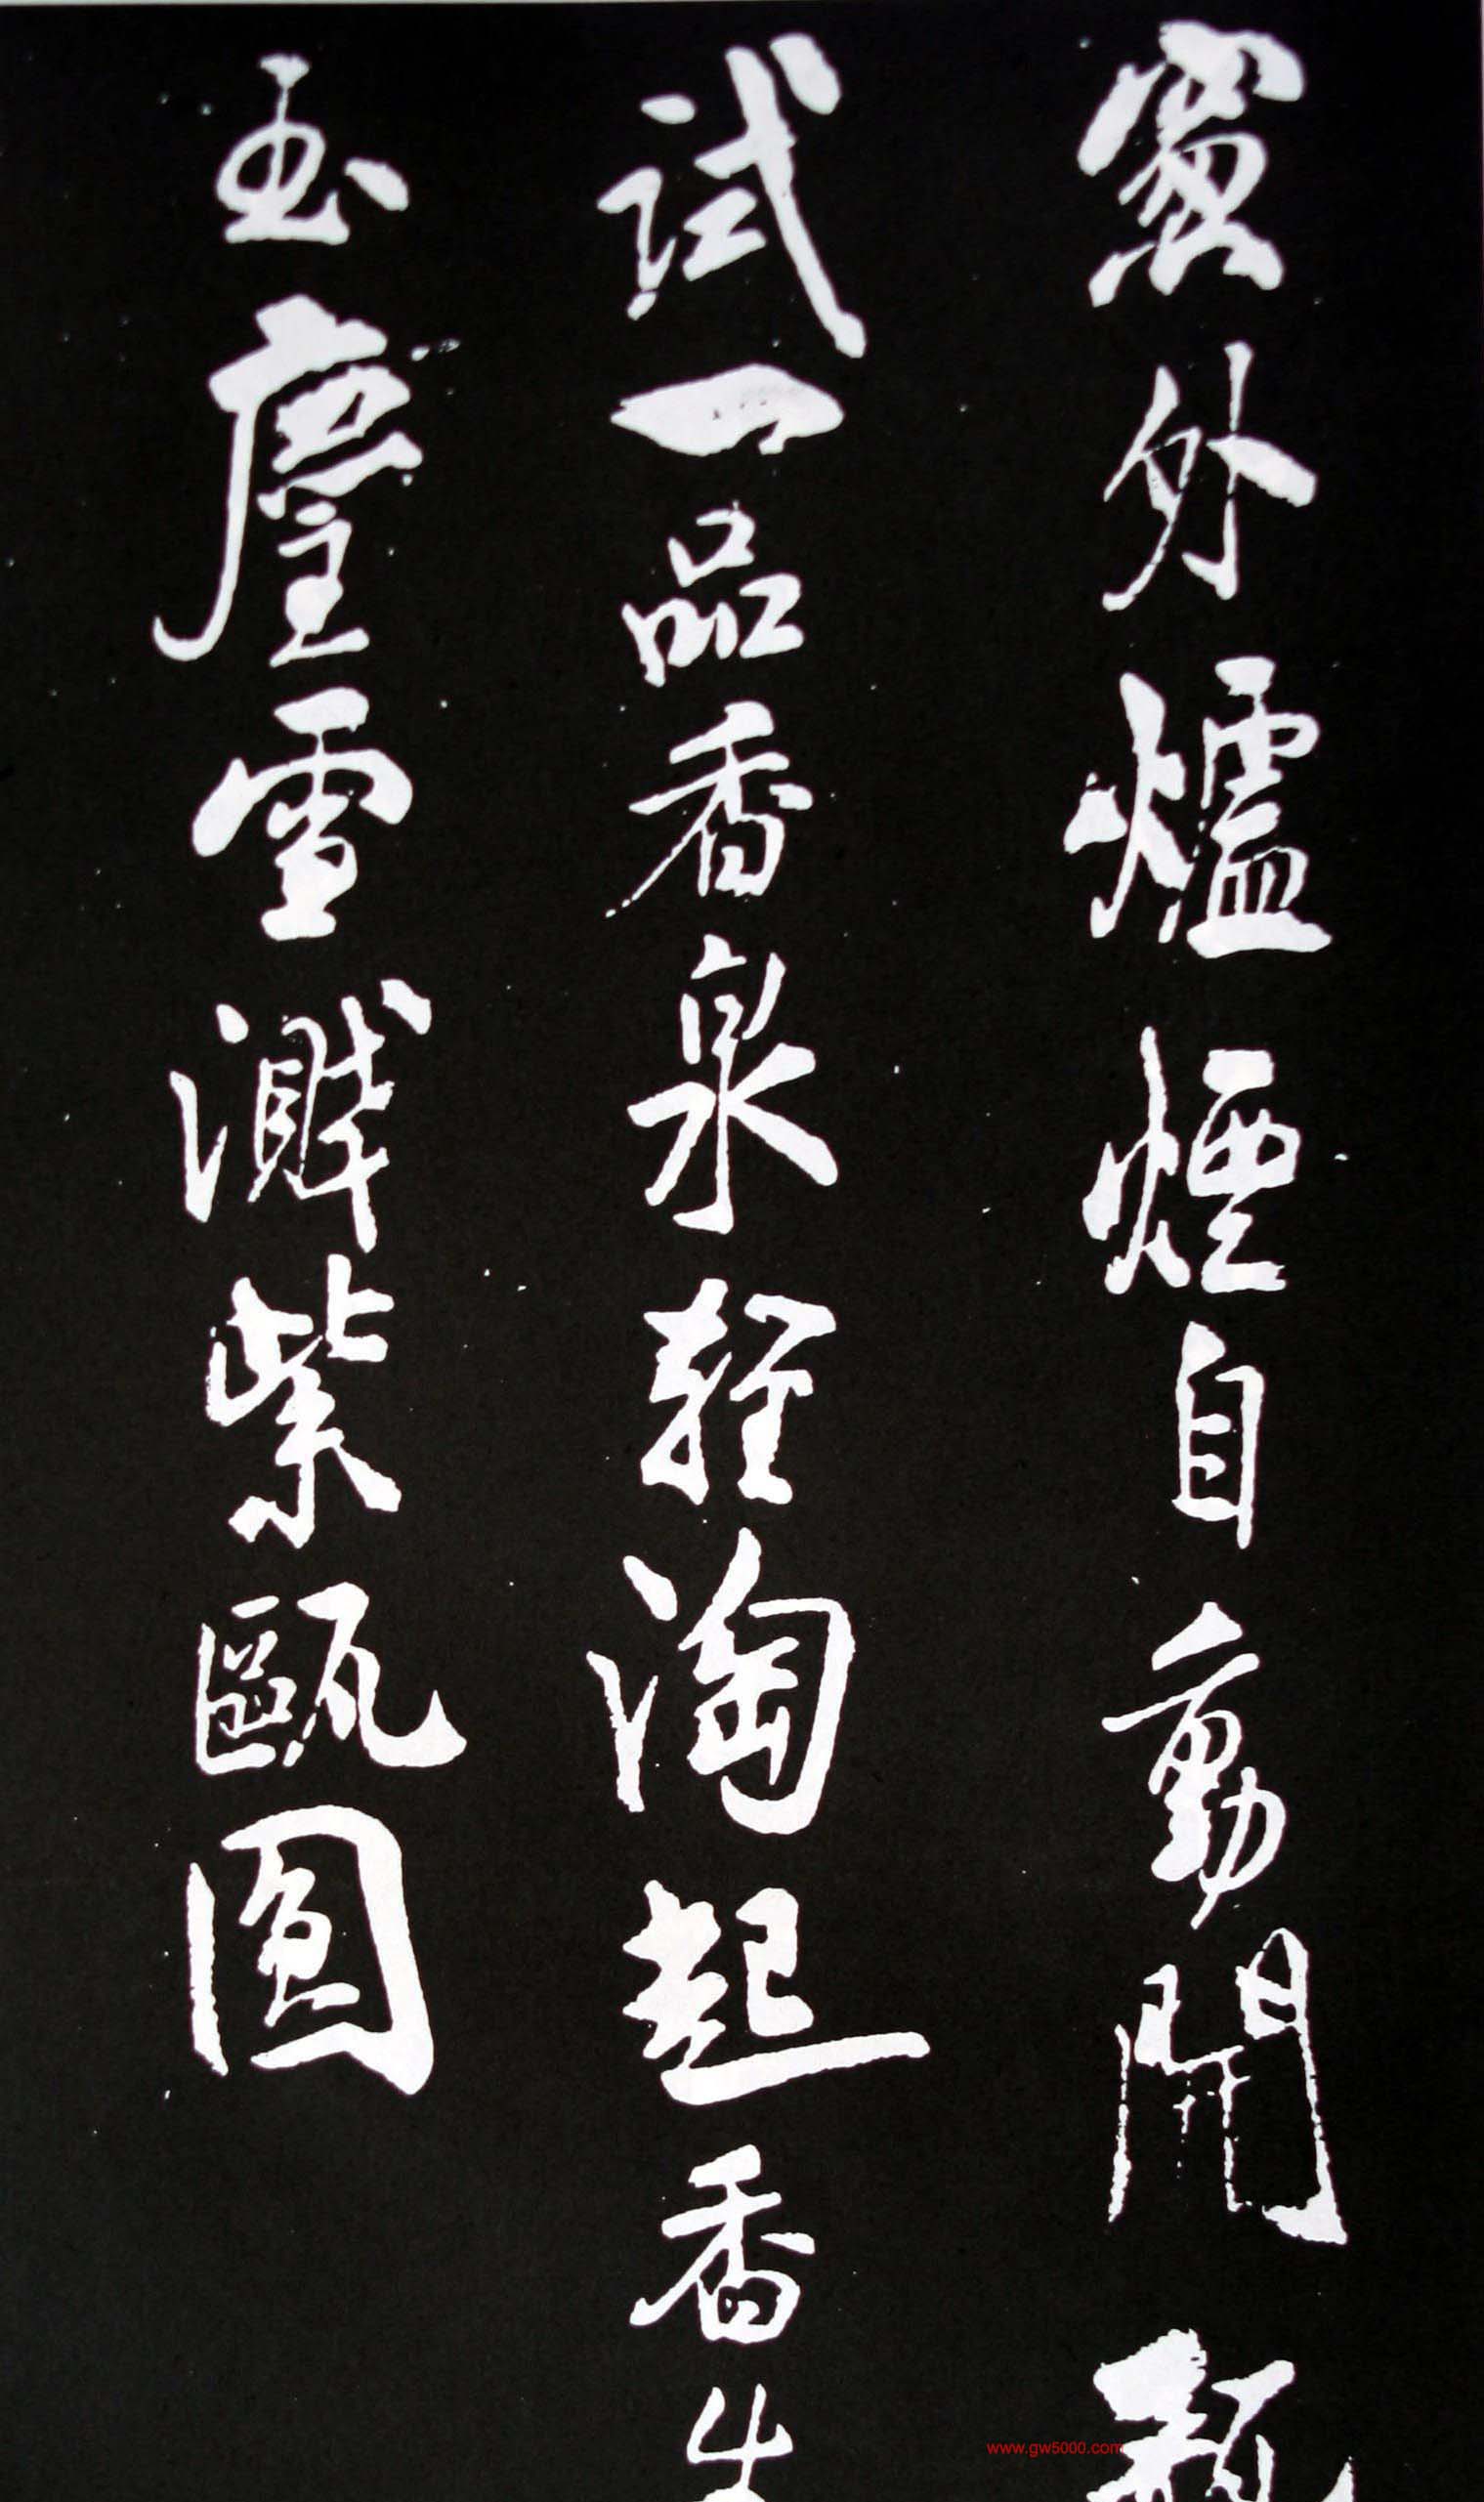 窗外爐煙自動開瓶
試一品香泉輕淘起香生
玉塵雪濺紫甌圓
www.gw5000.com